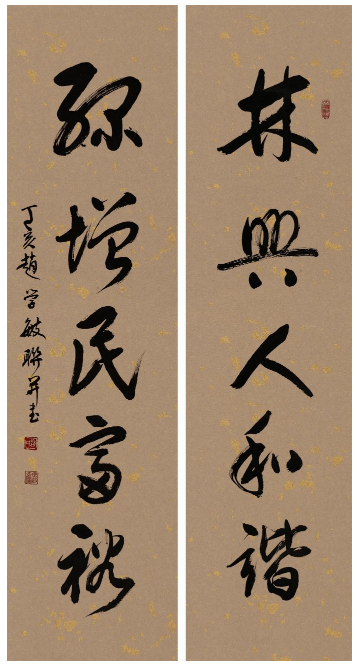 林興人和諧
綠增民富裕
丁亥趙学敏聯并書